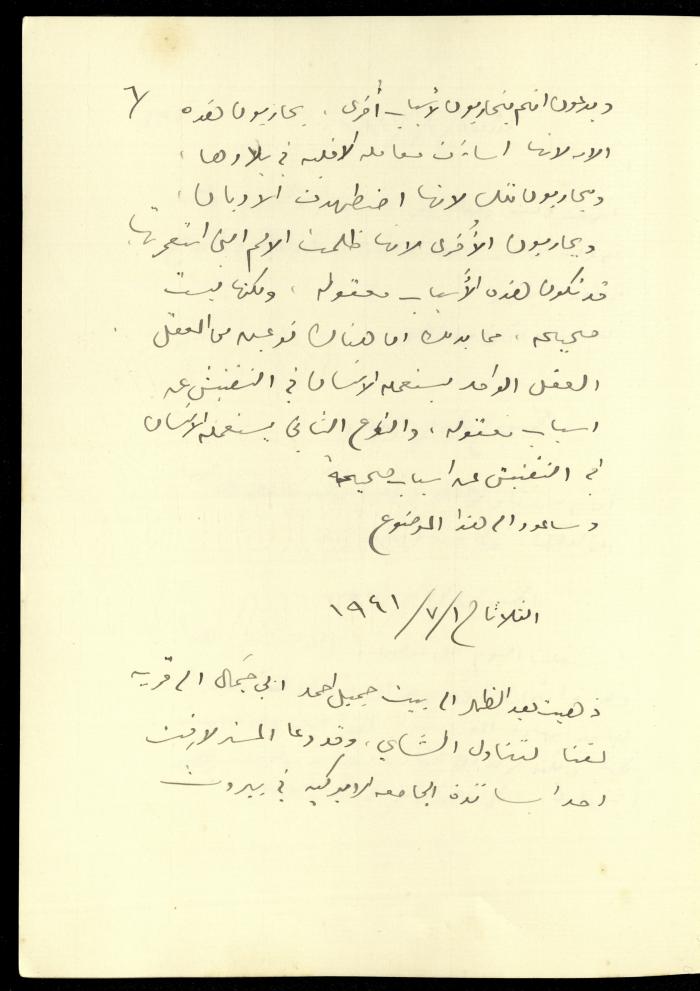 ٦
ويدعون انهم يتحاربون لأسباب أخرى . يحاربون هذه
الامه لانها اساءت معامله الاقليه في بلادها ،
ويحاربون تلك لانها اضطهدت الاديان ،
ويحاربون الأخرى لانها ظلمت الامم التي استعمرتها.
قد تكون هذه الأسباب معقوله ، ولكنها ليست
صحيحه ، مما يدلك ان هناك نوعين من العقل
العقل الواحد يستعمله الانسان في التفتيش عن
اسباب معقوله ، والنوع الثاني يستعمله الانسان
في التفتيش عن اسباب صحيحة
وساعود الى هذا الموضوع
الثلاثاء ١/٧/١٩٤١
ذهبت بعد الظهر الى بيت جميل احمد الى قريه
لتناول الشاي ، وقد دعا المستر
احد اساتذة الجامعه الاميركيه في بيروت